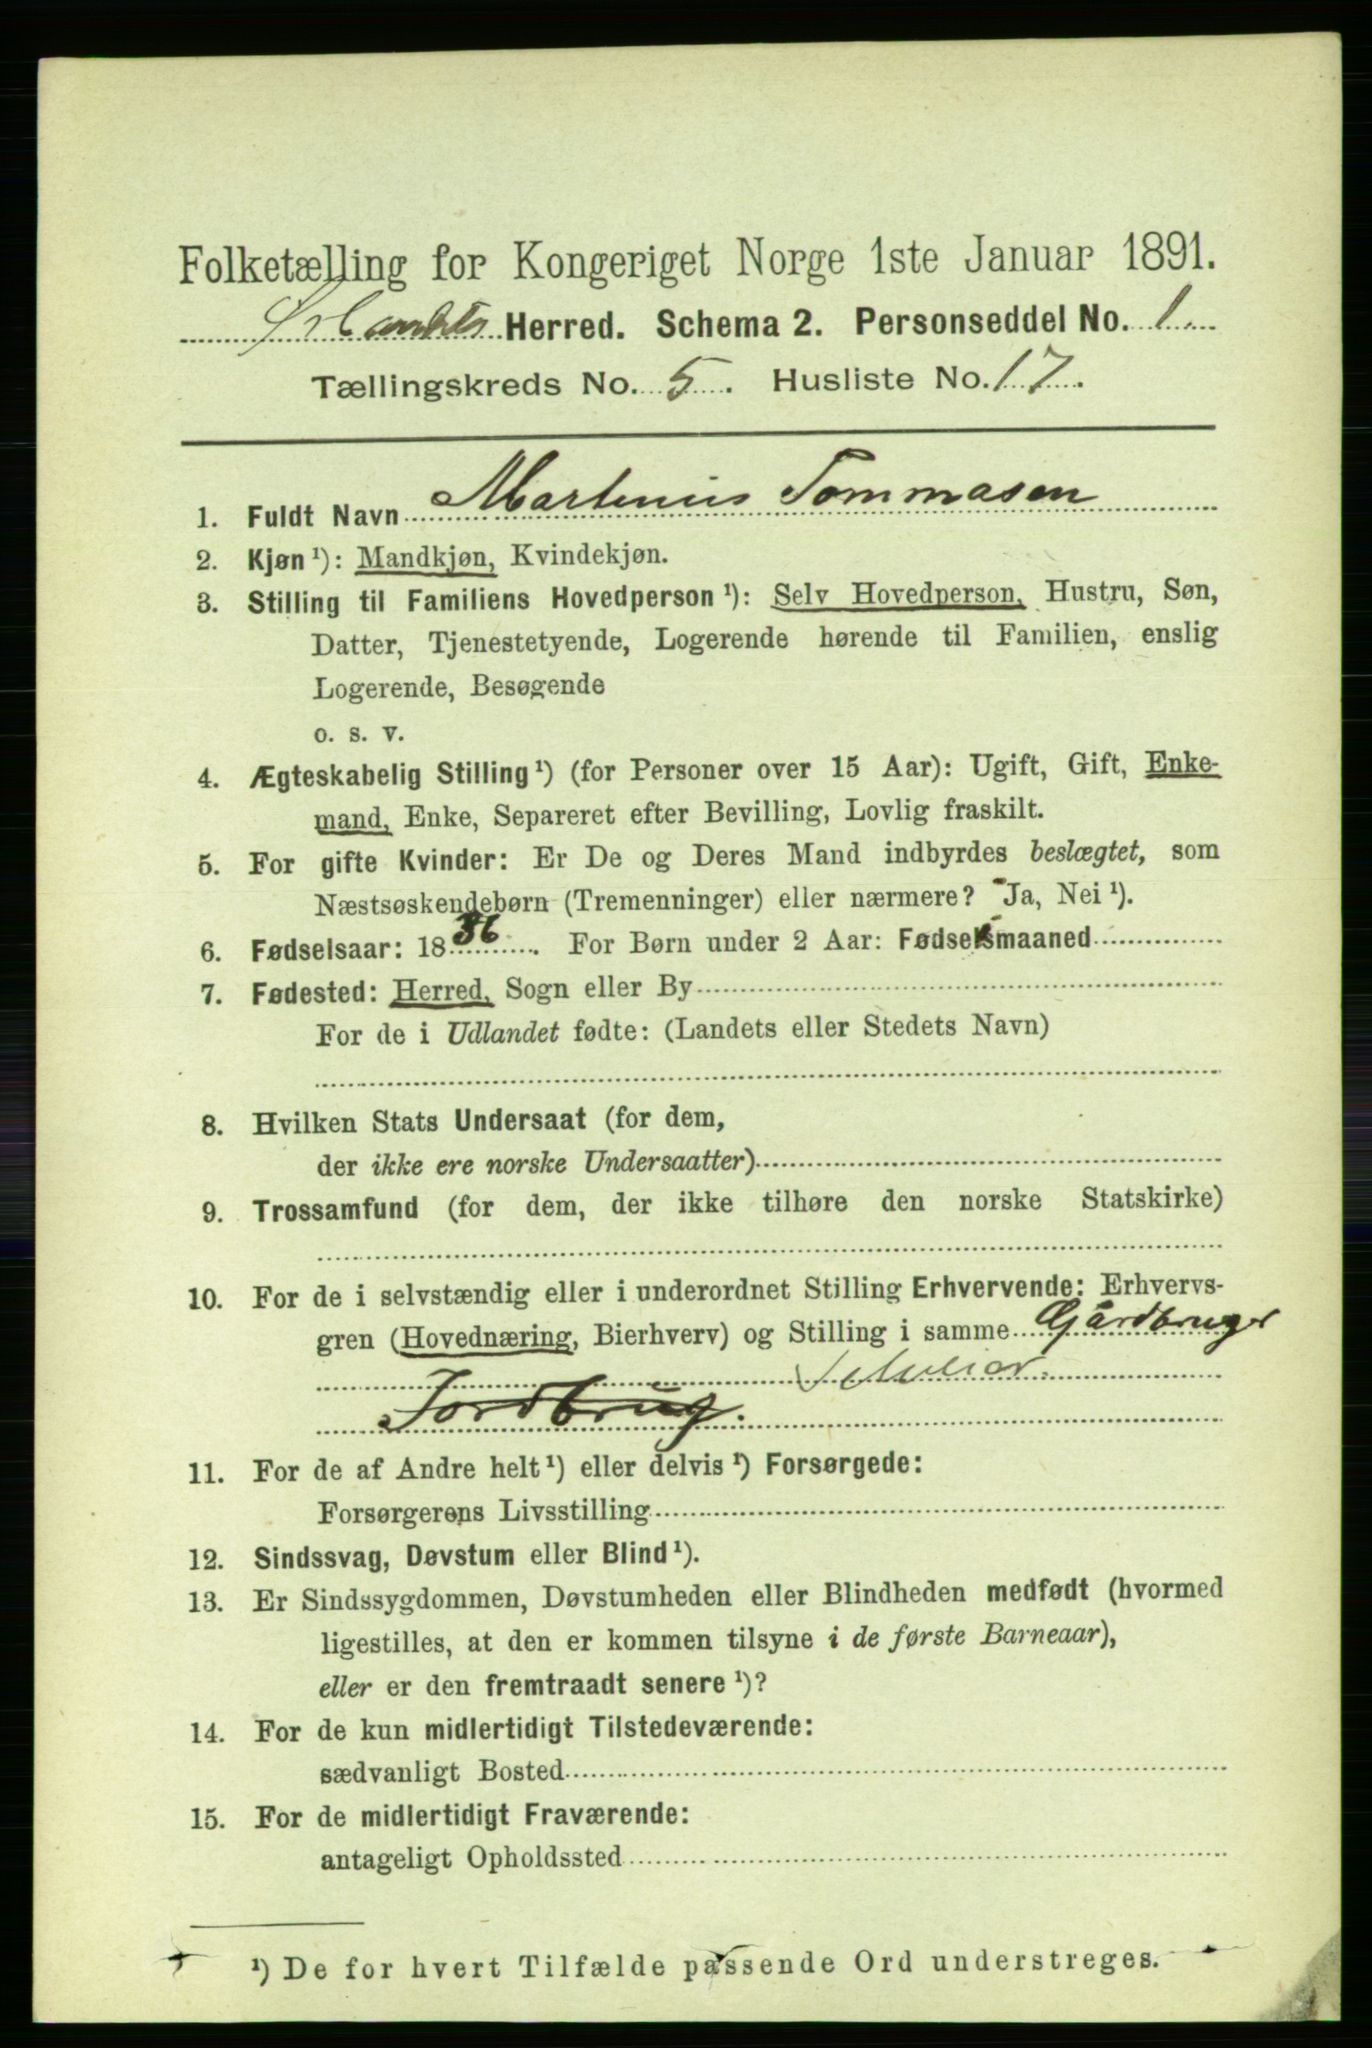 Folketælling for Kongeriget Norge 1ste Januar 1891.
Herred. Schema 2. Personseddel No. 1.
Tællingskreds No. 5. Husliste No. 17.
1. Fuldt Navn Martinius Tommasen
2. Kjøn ¹): Mandkjøn, Kvindekjøn.
3. Stilling til Familiens Hovedperson ¹): Selv Hovedperson, Hustru, Søn,
Datter, Tjenestetyende, Logerende hørende til Familien, enslig
Logerende, Besøgende
o. s. v.
4. Ægteskabelig Stilling ¹) (for Personer over 15 Aar): Ugift, Gift, Enke-
mand, Enke, Separeret efter Bevilling, Lovlig fraskilt.
5. For gifte Kvinder: Er De og Deres Mand indbyrdes beslægtet, som
Næstsøskendebørn (Tremenninger) eller nærmere? Ja, Nei ¹).
6. Fødselsaar: 1836. For Børn under 2 Aar: Fødselsmaaned
7. Fødested: Herred, Sogn eller By
For de i Udlandet fødte: (Landets eller Stedets Navn)
8. Hvilken Stats Undersaat (for dem,
der ikke ere norske Undersaatter)
9. Trossamfund (for dem, der ikke tilhøre den norske Statskirke)
10. For de i selvstændig eller i underordnet Stilling Erhvervende: Erhvervs-
gren (Hovednæring, Bierhverv) og Stilling i samme Gårdbruger
Selveier
Jordbrug.
11. For de af Andre helt ¹) eller delvis ¹) Forsørgede:
Forsørgerens Livsstilling
12. Sindssvag, Døvstum eller Blind ¹).
13. Er Sindssygdommen, Døvstumheden eller Blindheden medfødt (hvormed
ligestilles, at den er kommen tilsyne i de første Barneaar),
eller er den fremtraadt senere ¹)?
14. For de kun midlertidigt Tilstedeværende:
sædvanligt Bosted
15. For de midlertidigt Fraværende:
antageligt Opholdssted
¹) De for hvert Tilfælde passende Ord understreges.